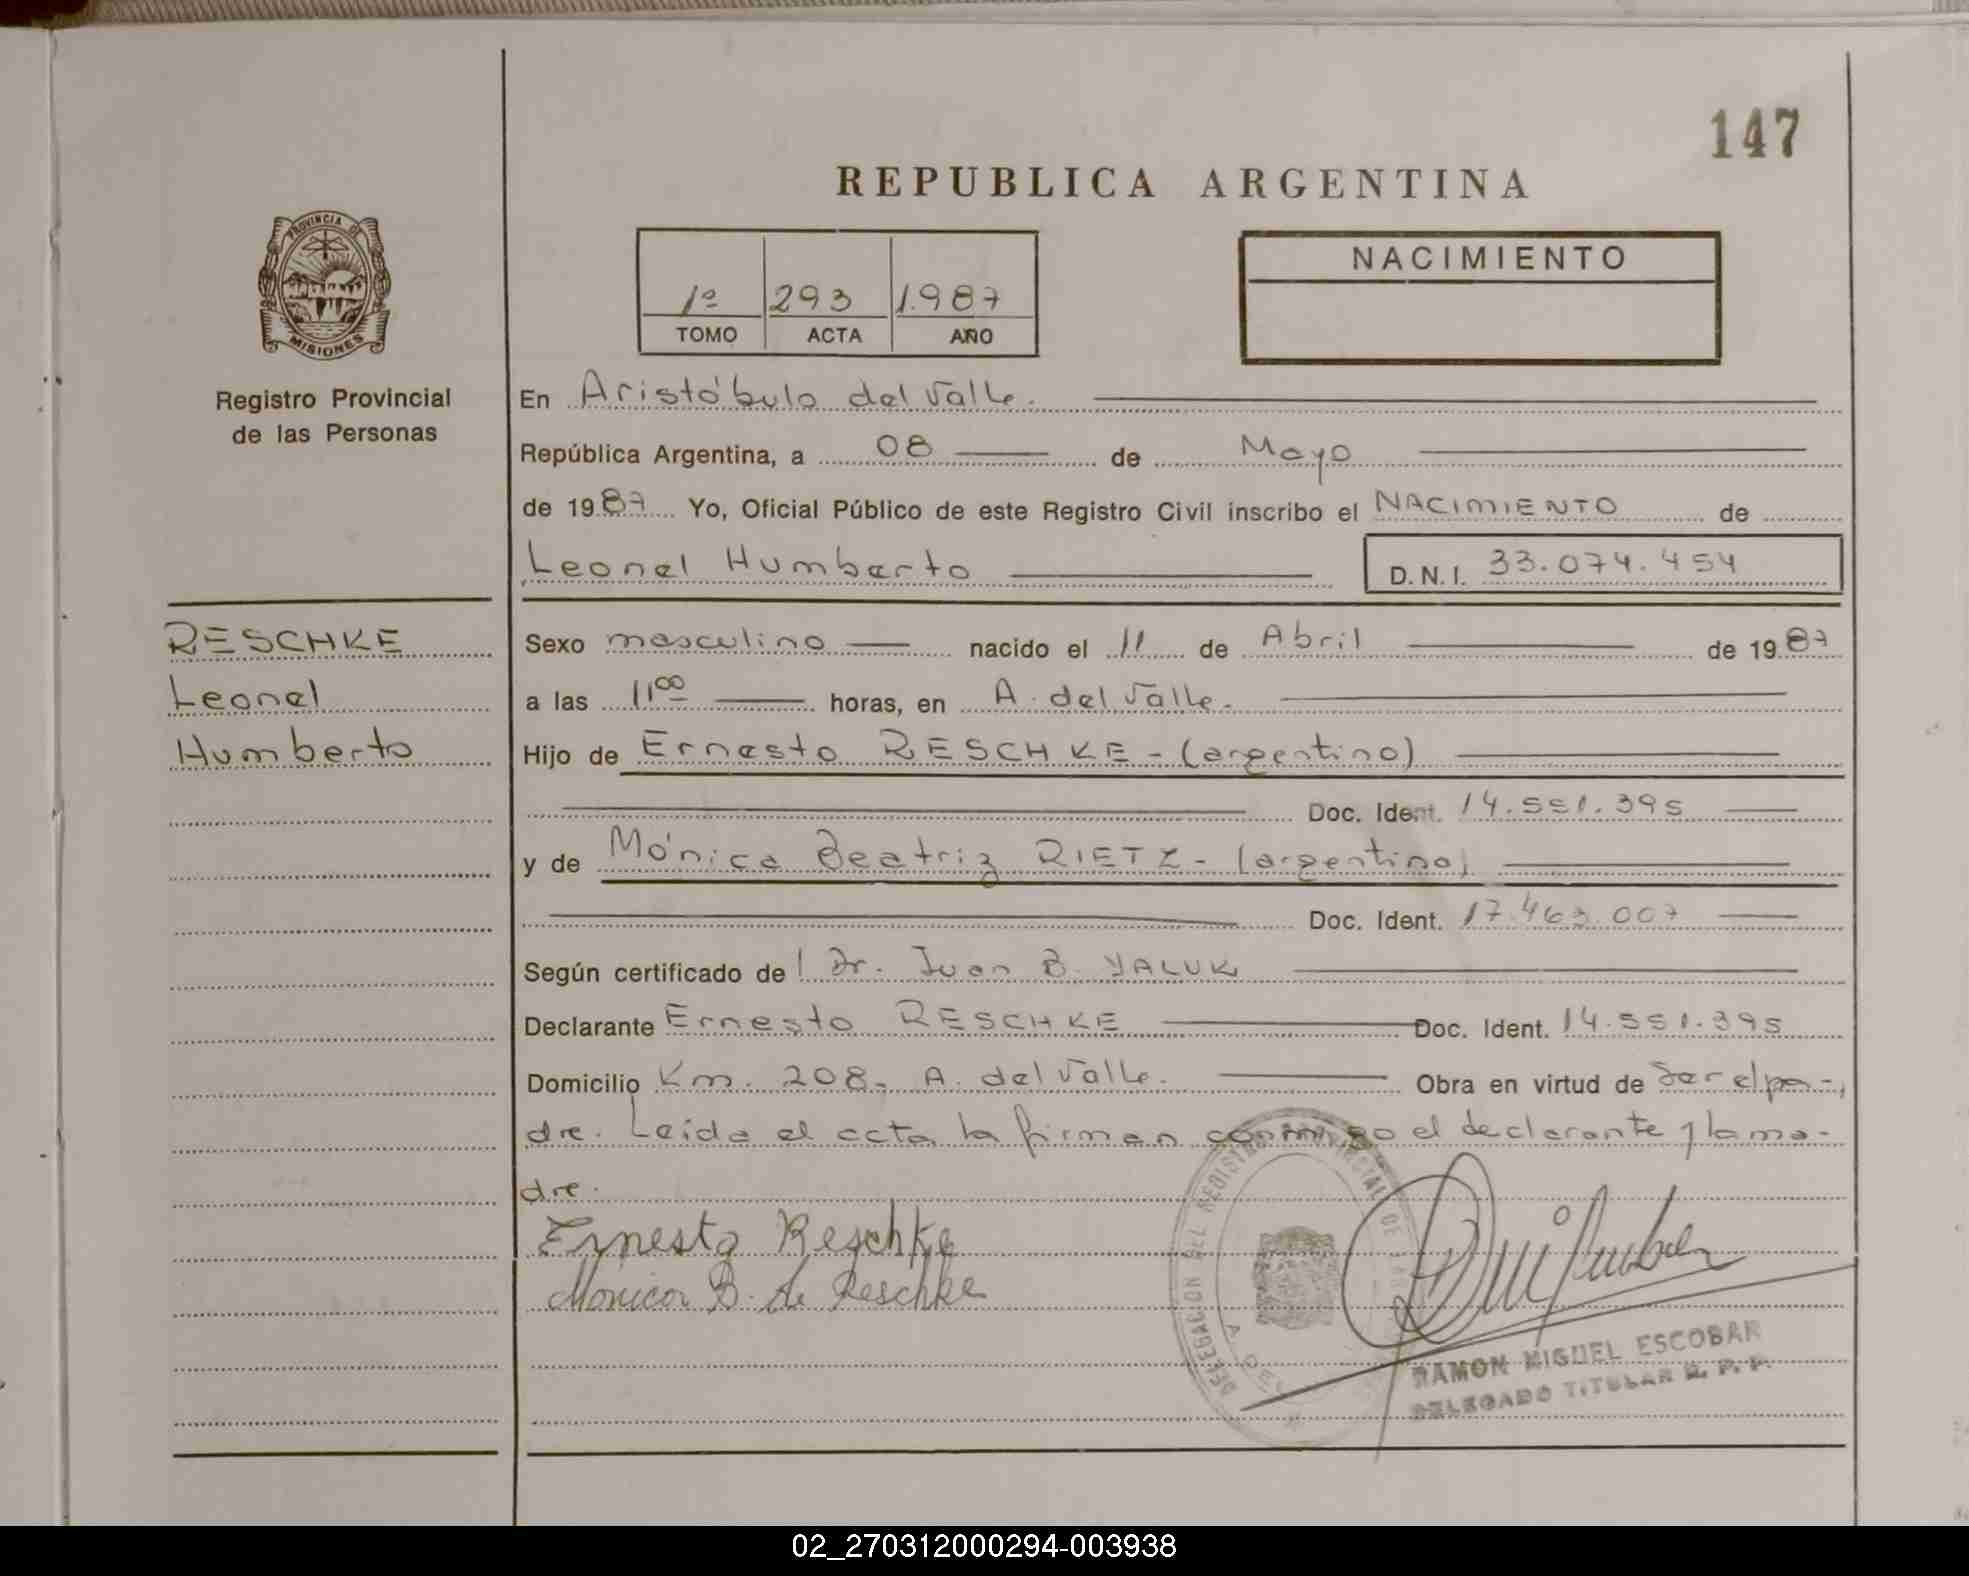 147
REPUBLICA ARGENTINA
PROVINCIA DE
MISIONES
Registro Provincial
de las Personas
1º 293 1.987
TOMO ACTA AÑO
NACIMIENTO
En Aristóbulo del Valle.
República Argentina, a 08 de Mayo
de 1987 Yo, Oficial Público de este Registro Civil inscribo el NACIMIENTO de
Leonel Humberto D.N.I. 33.074.454
RESCHKE
Leonel
Humberto
Sexo masculino nacido el 11 de Abril de 1987
a las 11 00 horas, en A. del Valle.
Hijo de Ernesto RESCHKE - (argentino)
Doc. Ident. 14.551.395
y de Mónica Beatriz RIETZ - (argentina)
Doc. Ident. 17.463.007
Según certificado de Dr. Juan B. YALUK
Declarante Ernesto RESCHKE Doc. Ident. 14.551.395
Domicilio Km. 208, A. del Valle. Obra en virtud de Ser el pa-
dre. Leída el acta la firman conmigo el declarante y la ma-
dre.
Ernesto Reschke
Monica B. de Reschke
DELEGACION DEL REGISTRO PROVINCIAL DE
A. DEL
RAMON MIGUEL ESCOBAR
DELEGADO TITULAR R. P. P.
02_270312000294-003938